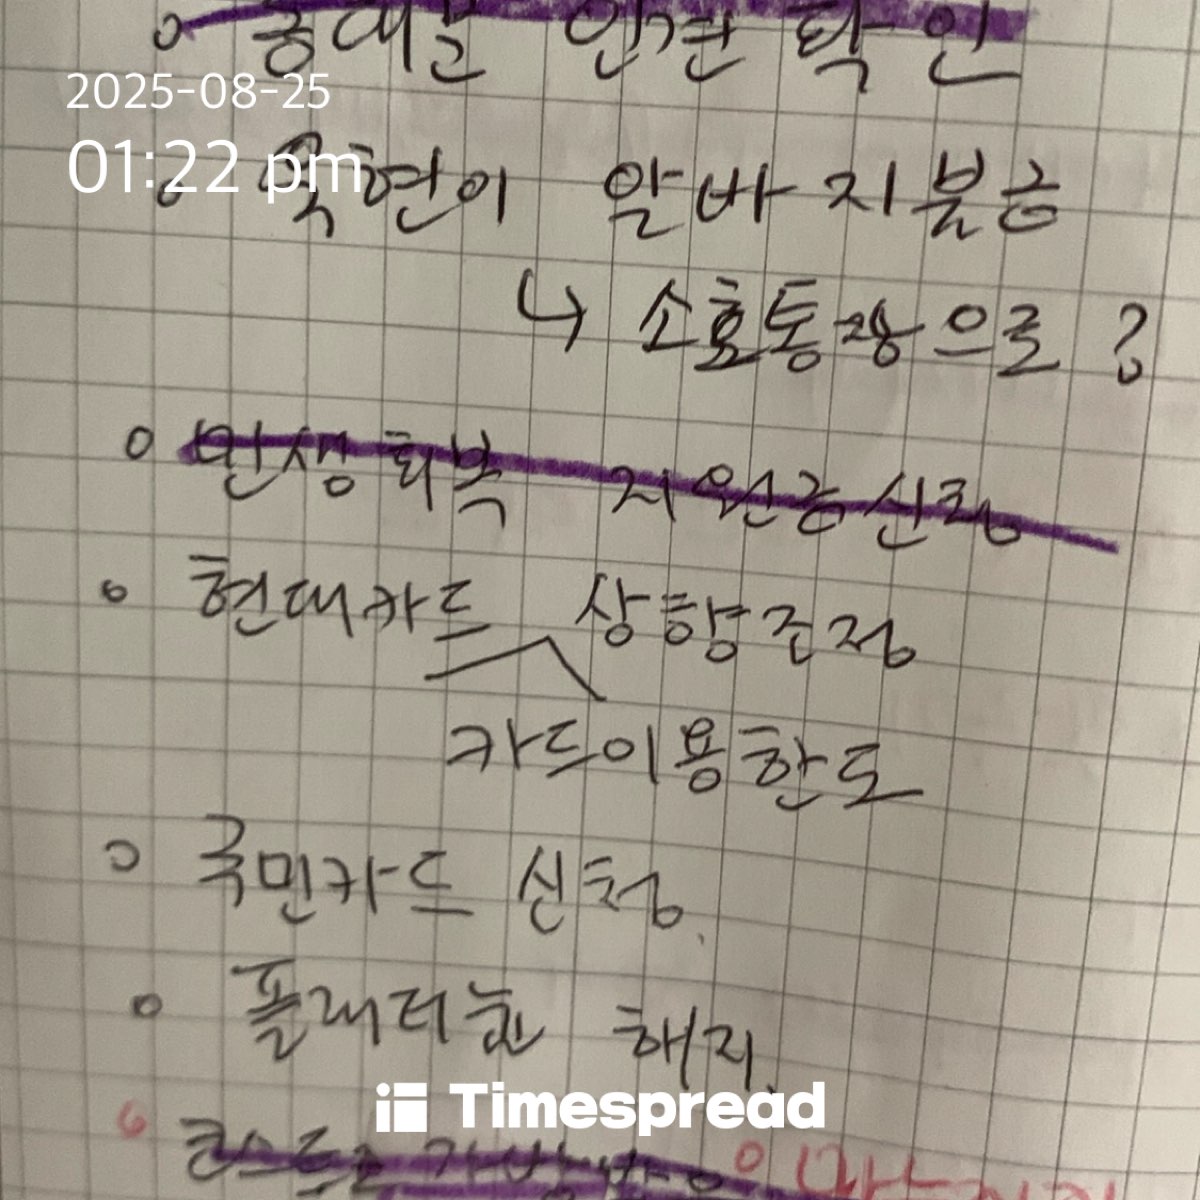 2025-08-25
01:22 pm
인천 확인
알바 지불금
↳ 소호통장으로?
민생회복 지원금 신청
현대카드 상향조정
카드이용한도
국민카드 신청.
플래티늄 해지.
Timespread